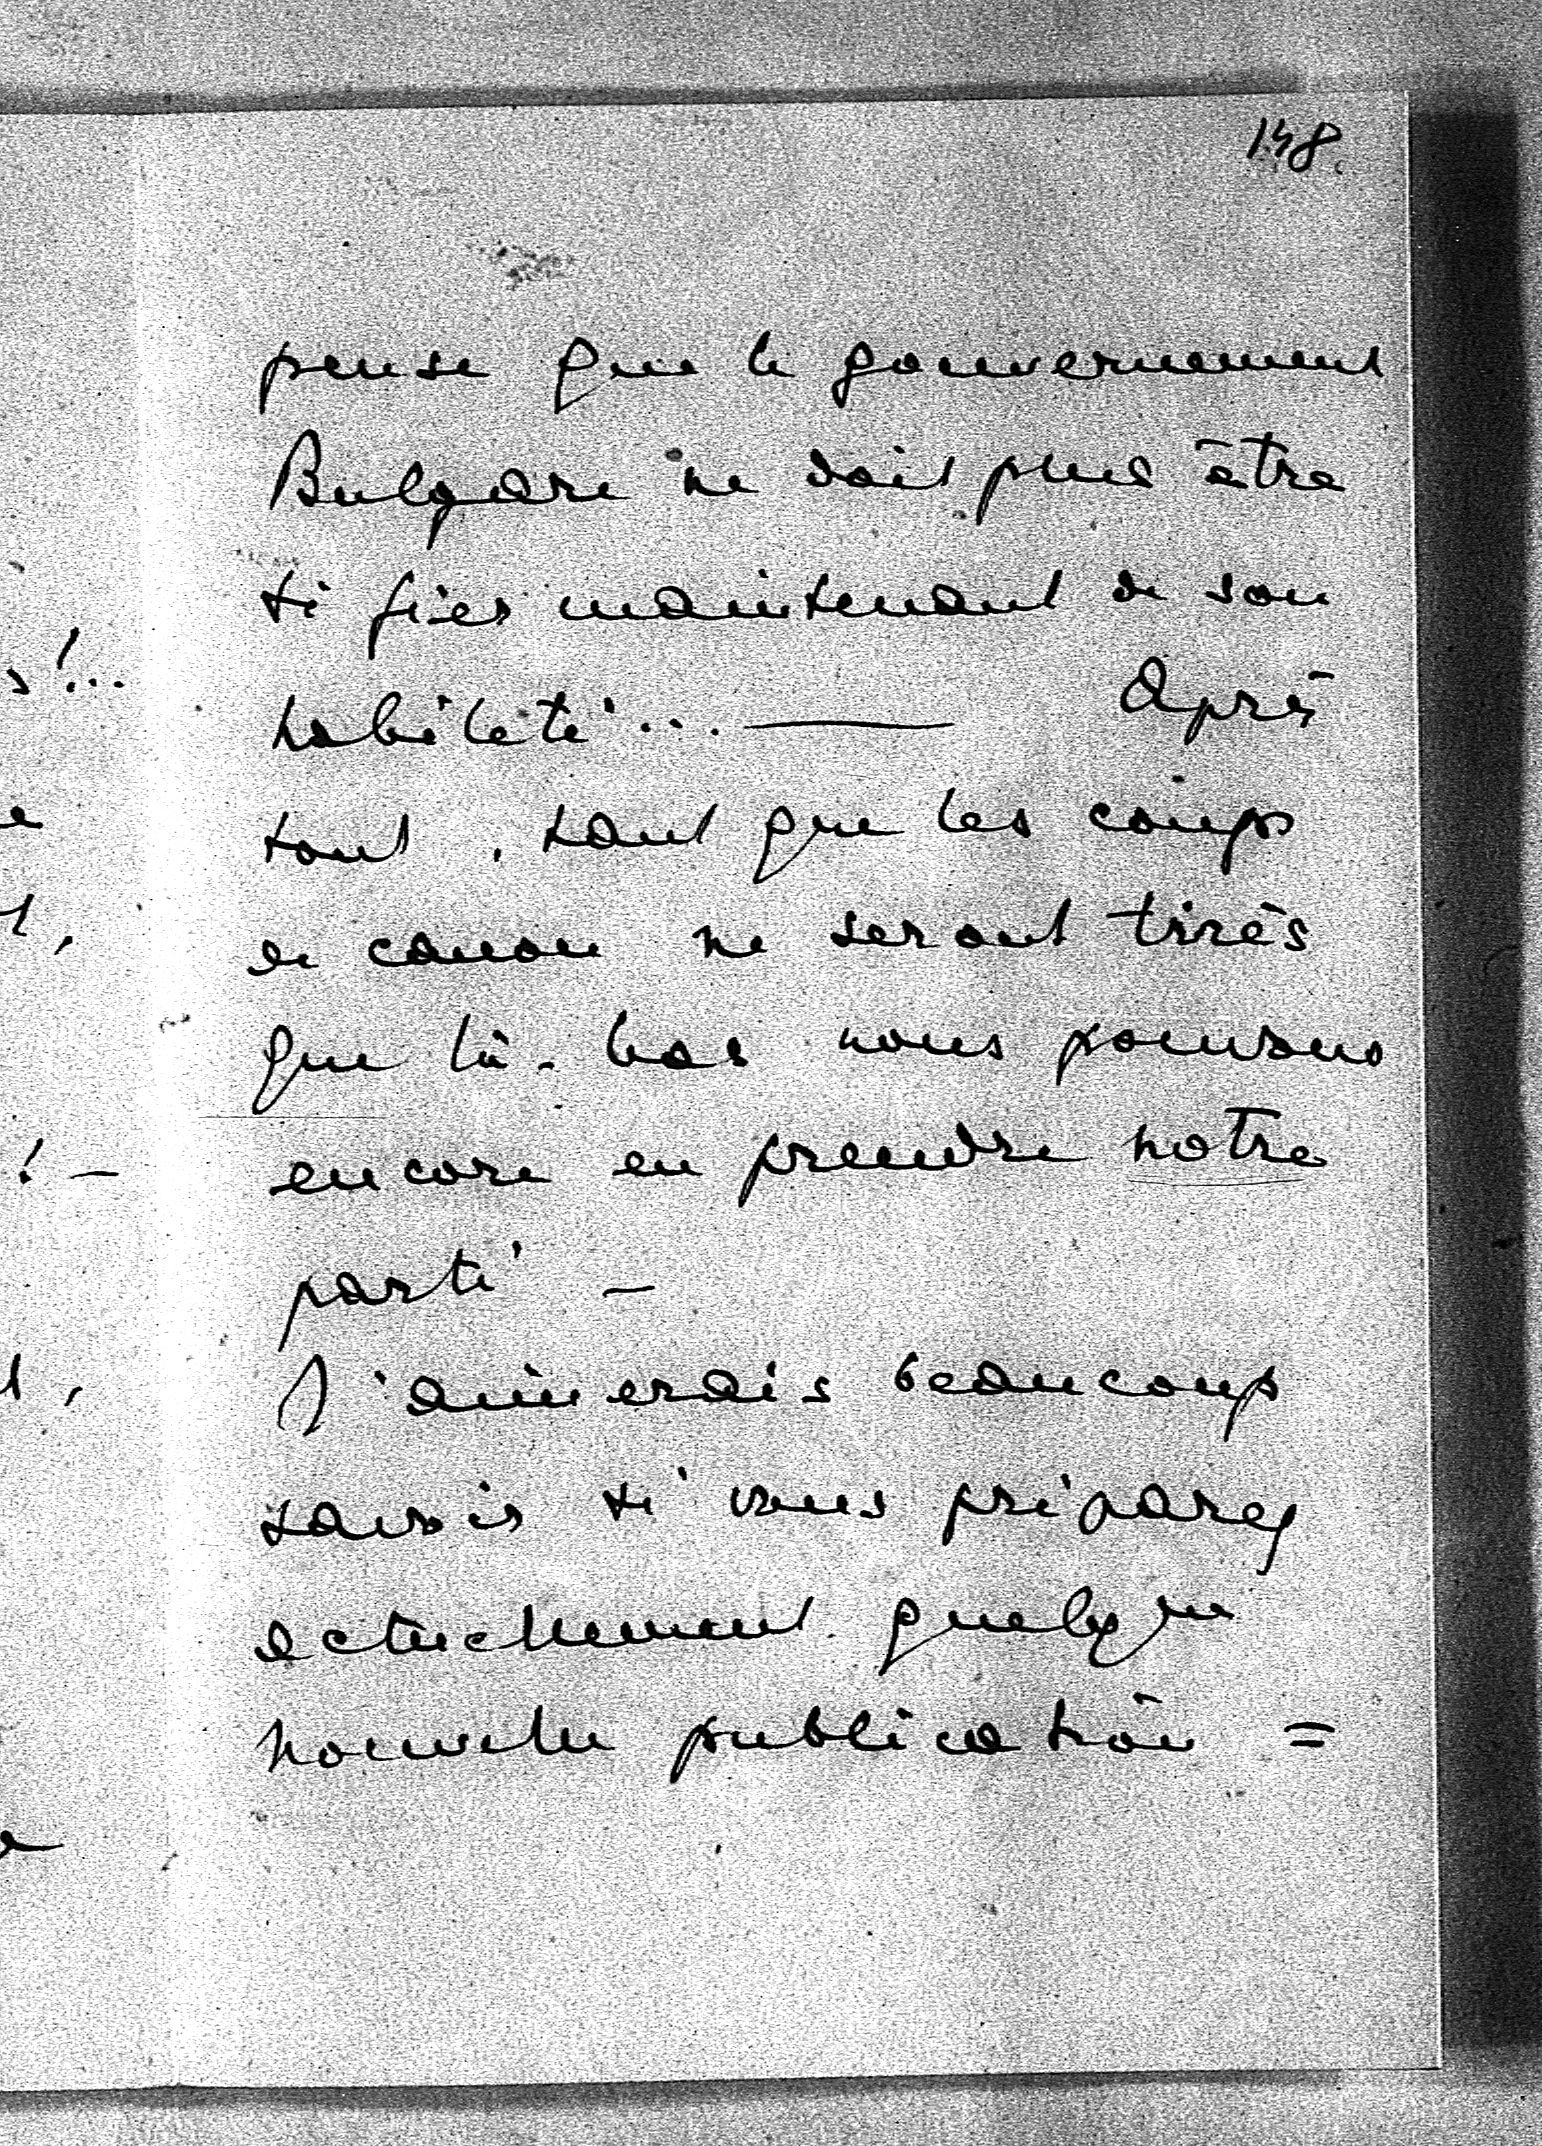 148.
pense que le gouvernement
Bulgare ne doit plus être
si fier maintenant de son
habileté... — Après
tout, tant que les coups
de canon ne seront tirés
que là-bas nous pouvons
encore en prendre notre
parti —
J'aimerais beaucoup
savoir si vous préparez
actuellement quelque
nouvelle publication =